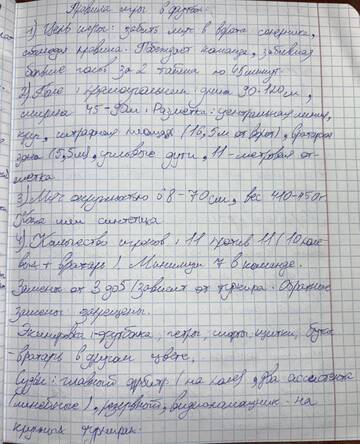 Правила игры в футбол.
1) Цель игры: забить мяч в ворота соперника,
соблюдая правила. Побеждает команда, забившая
больше голов за 2 тайма по 45 минут.
2) Поле: прямоугольник длина 90-120м,
ширина 45-90м. Разметка: центральная линия,
круг, штрафная площадь (16,5м от ворот), вратарская
зона (5,5м), угловые дуги, 11-метровая от-
метка
3) Мяч окружностью 68-70см, вес 410-450г
Кожа или синтетика
4) Количество игроков: 11 против 11 (10 поле
вых + вратарь). Минимум 7 в команде.
Замены от 3 до 5 (зависит от турнира. Обратные
замены запрещены.
Экипировка -футболка, гетры, шорты, щитки, бутсы
-вратарь в другом цвете.
Судьи: главный арбитр (на поле), два ассистента
(линейные), резервный, видеопомощник - на
крупных турнирах.